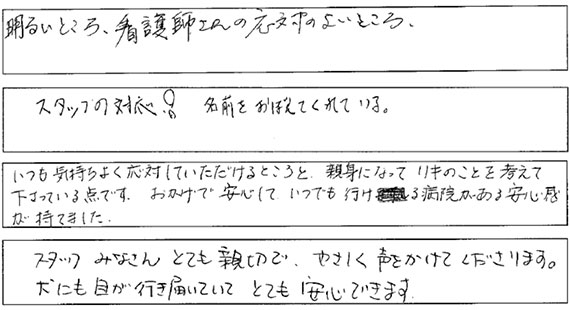 明るいところ、看護師さんの応対のよいところ、
スタッフの対応!! 名前をおぼえてくれている。
いつも気持ちよく応対していただけるところと、親身になって リキのことを考えて
下さっている点です。おかげで 安心して いつでも 行ける病院がある安心感
が 持てました。
スタッフ みなさん とても 親切で、やさしく 声をかけて くださります。
犬にも 目が 行き届いていて とても 安心できます